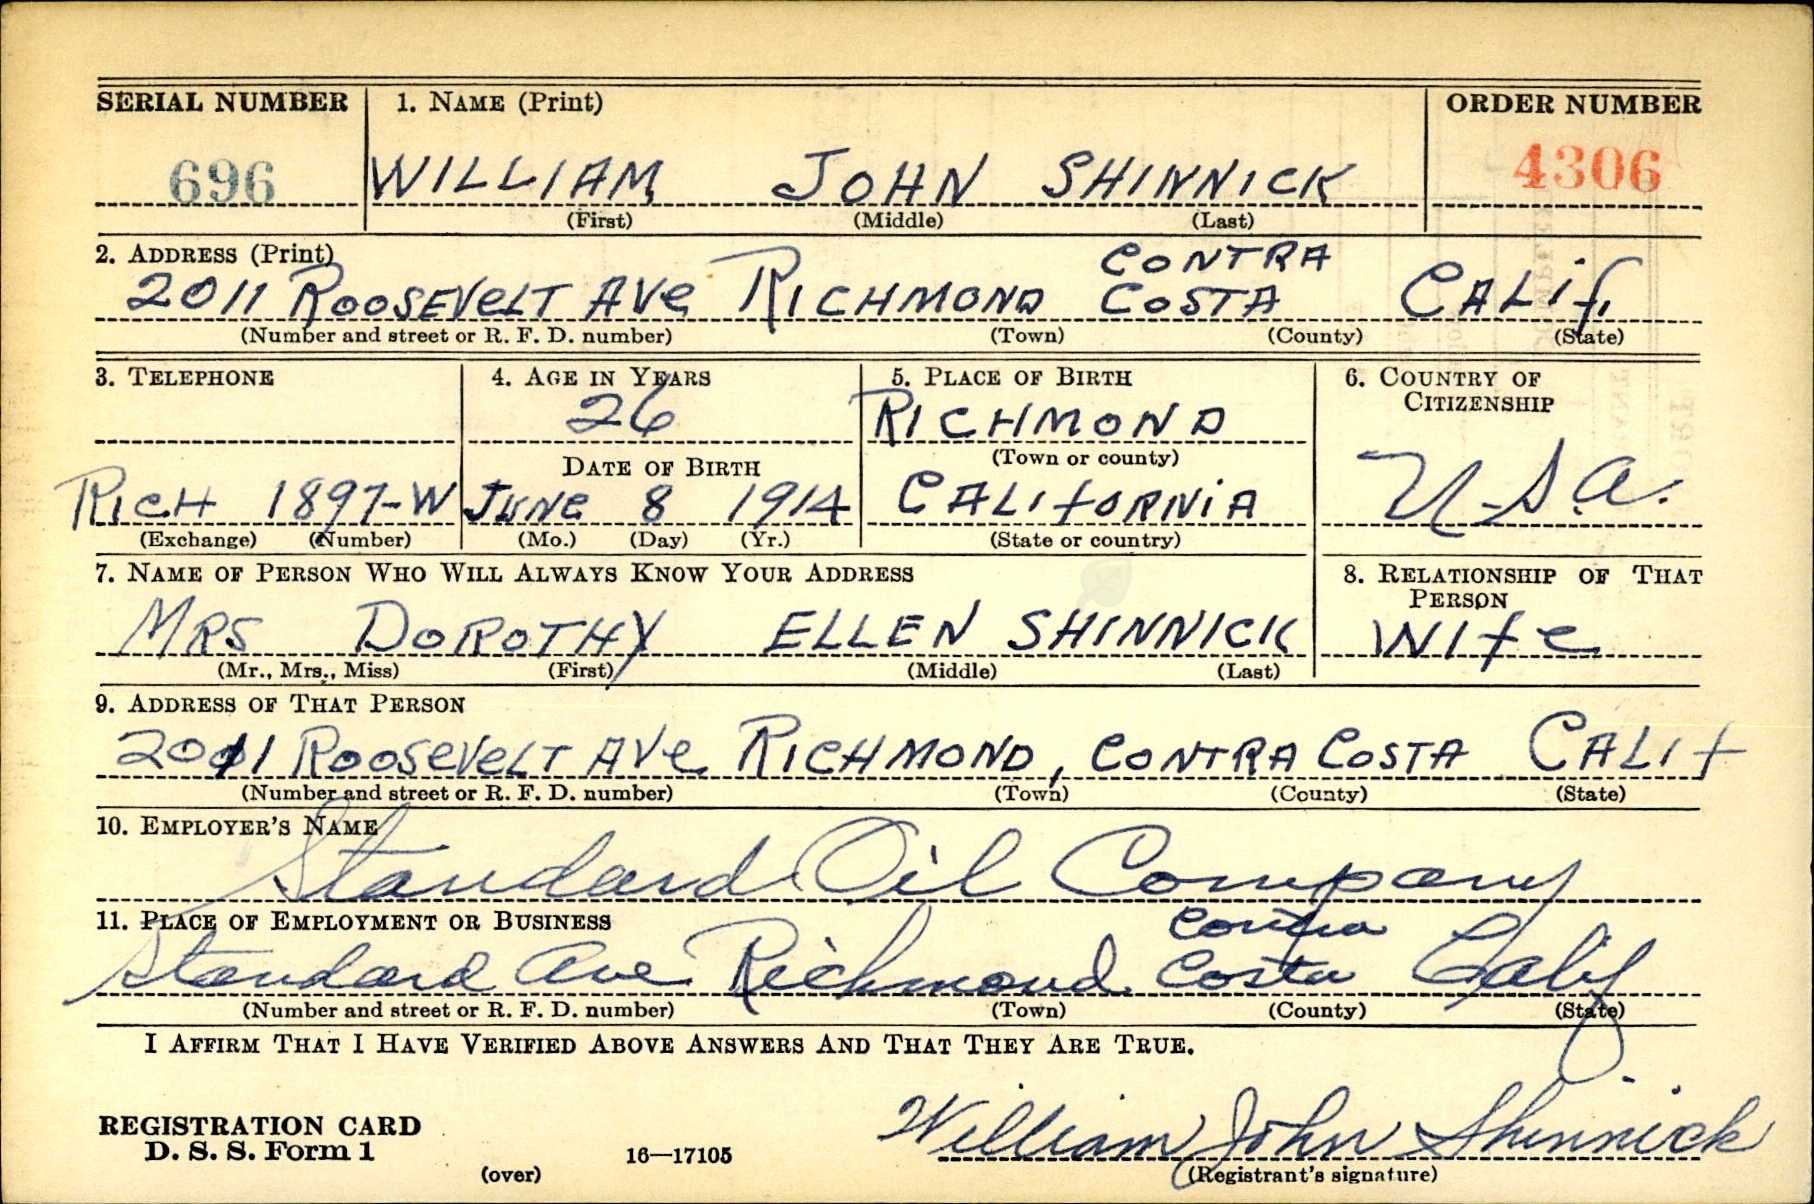 SERIAL NUMBER 1. NAME (Print) ORDER NUMBER
696 WILLIAM JOHN SHINNICK 4306
(First) (Middle) (Last)
2. ADDRESS (Print)
2011 ROOSEVELT AVE RICHMOND CONTRA COSTA CALIF.
(Number and street or R. F. D. number) (Town) (County) (State)
3. TELEPHONE 4. AGE IN YEARS 5. PLACE OF BIRTH 6. COUNTRY OF CITIZENSHIP
26 RICHMOND
(Town or county)
DATE OF BIRTH
RICH 1897-W JUNE 8 1914 CALIFORNIA U.S.A.
(Exchange) (Number) (Mo.) (Day) (Yr.) (State or country)
7. NAME OF PERSON WHO WILL ALWAYS KNOW YOUR ADDRESS 8. RELATIONSHIP OF THAT PERSON
MRS DOROTHY ELLEN SHINNICK WIFE
(Mr., Mrs., Miss) (First) (Middle) (Last)
9. ADDRESS OF THAT PERSON
2011 ROOSEVELT AVE RICHMOND, CONTRA COSTA CALIF
(Number and street or R. F. D. number) (Town) (County) (State)
10. EMPLOYER'S NAME
Standard Oil Company
11. PLACE OF EMPLOYMENT OR BUSINESS
Standard Ave Richmond Contra Costa Calif
(Number and street or R. F. D. number) (Town) (County) (State)
I AFFIRM THAT I HAVE VERIFIED ABOVE ANSWERS AND THAT THEY ARE TRUE.
REGISTRATION CARD
D. S. S. Form 1 16—17105 William John Shinnick
(over) (Registrant's signature)